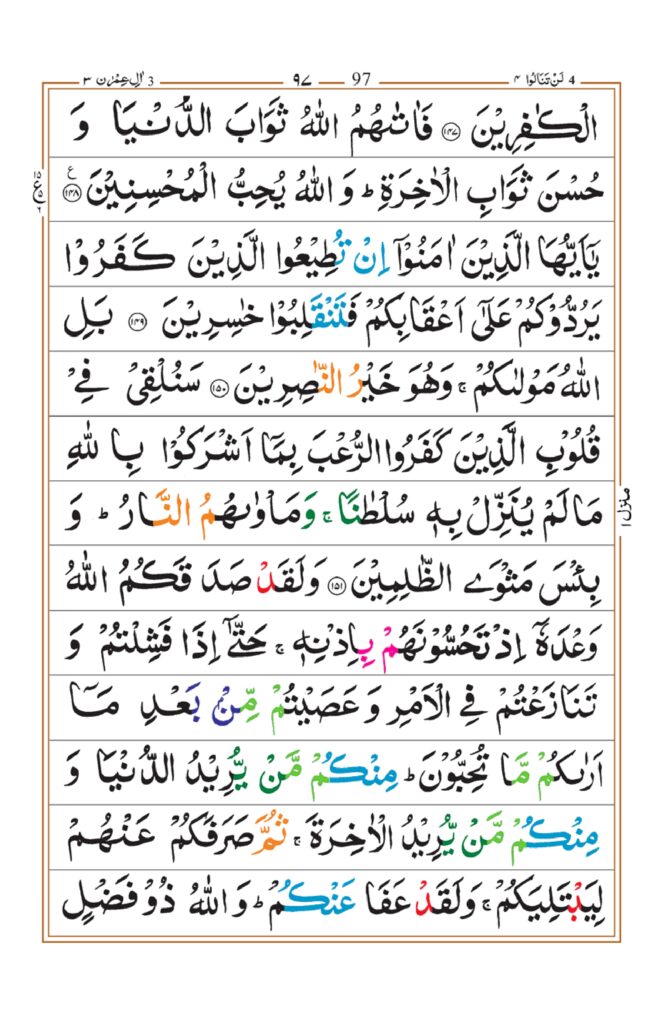 3 اٰلِ عِمْرٰن ٣ 97 ٩٧ 4 لَنْ تَنَالُوا ٤
الْكٰفِرِيْنَ ﴿۱۴۷﴾ فَاٰتٰىهُمُ اللّٰهُ ثَوَابَ الدُّنْيَا وَ
حُسْنَ ثَوَابِ الْاٰخِرَةِ ؕ وَ اللّٰهُ يُحِبُّ الْمُحْسِنِيْنَ ﴿۱۴۸﴾ ع
يٰۤاَيُّهَا الَّذِيْنَ اٰمَنُوْۤا اِنْ تُطِيْعُوا الَّذِيْنَ كَفَرُوْا
يَرُدُّوْكُمْ عَلٰۤى اَعْقَابِكُمْ فَتَنْقَلِبُوْا خٰسِرِيْنَ ﴿۱۴۹﴾ بَلِ
اللّٰهُ مَوْلٰىكُمْ ۚ وَهُوَ خَيْرُ النّٰصِرِيْنَ ﴿۱۵۰﴾ سَنُلْقِيْ فِيْ
قُلُوْبِ الَّذِيْنَ كَفَرُوا الرُّعْبَ بِمَاۤ اَشْرَكُوْا بِاللّٰهِ
مَا لَمْ يُنَزِّلْ بِهٖ سُلْطٰنًا ۚ وَمَاْوٰىهُمُ النَّارُ ؕ وَ
بِئْسَ مَثْوَى الظّٰلِمِيْنَ ﴿۱۵۱﴾ وَلَقَدْ صَدَقَكُمُ اللّٰهُ
وَعْدَهٗۤ اِذْ تَحُسُّوْنَهُمْ بِاِذْنِهٖ ۚ حَتّٰۤى اِذَا فَشِلْتُمْ وَ
تَنَازَعْتُمْ فِي الْاَمْرِ وَ عَصَيْتُمْ مِّنْۢ بَعْدِ مَاۤ
اَرٰىكُمْ مَّا تُحِبُّوْنَ ؕ مِنْكُمْ مَّنْ يُّرِيْدُ الدُّنْيَا وَ
مِنْكُمْ مَّنْ يُّرِيْدُ الْاٰخِرَةَ ۚ ثُمَّ صَرَفَكُمْ عَنْهُمْ
لِيَبْتَلِيَكُمْ ۚ وَلَقَدْ عَفَا عَنْكُمْ ؕ وَ اللّٰهُ ذُوْ فَضْلٍ
منزل ١